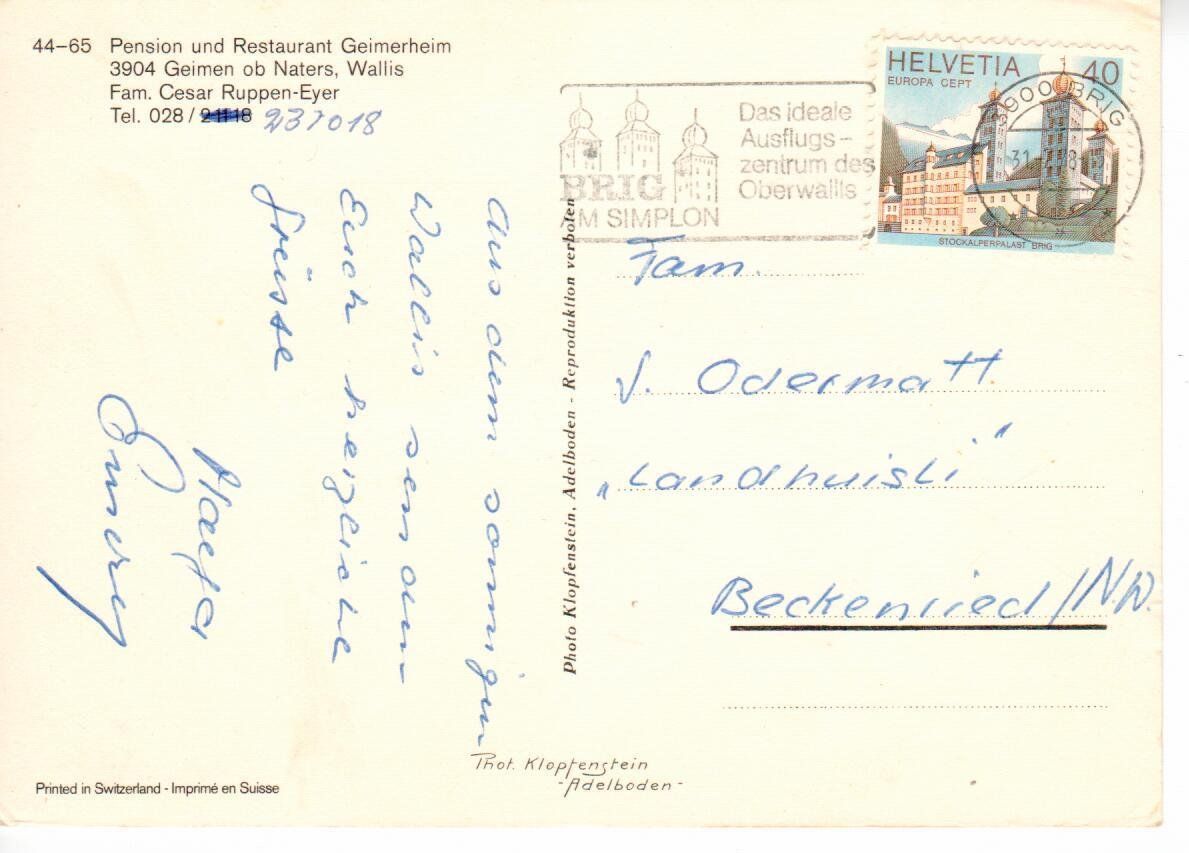 44-65 Pension und Restaurant Geimerheim
3904 Geimen ob Naters, Wallis
Fam. Cesar Ruppen-Eyer
Tel. 028/ 237018
BRIG
AM SIMPLON
Das ideale
Ausflugs-
zentrum des
Oberwallis
HELVETIA 40
EUROPA CEPT
STOCKALPERPALAST BRIG
3900 BRIG
Aus dem sonnigen
Wallis senden
Euch herzliche
Grüsse
Photo Klopfenstein, Adelboden - Reproduktion verboten
Fam.
J. Odermatt
„Landhuisli"
Beckenried/N.W.
Phot. Klopfenstein
- Adelboden -
Printed in Switzerland - Imprimé en Suisse